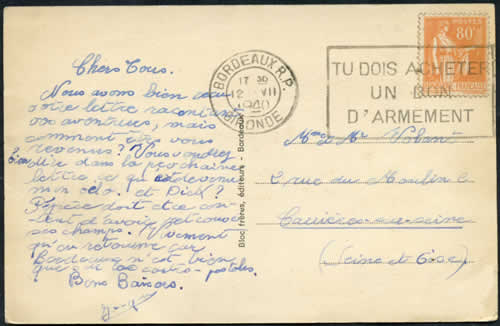 Chers Tous.
Nous avons bien reçu
votre lettre racontant
vos aventures, mais
comment êtes vous
revenus? Vous voudrez
dire dans la prochaine
lettre ce qu'est devenu
mon vélo. et Dick?
Pépère doit être con-
tent d'avoir retrouvé
ses champs. Vivement
qu'on retourne car
Bordeaux n'est bien
que sur les cartes-postales.
Bons Baisers.
Bloc frères, éditeurs - Bordeaux
BORDEAUX R.P.
17 30
12 VII
1940
GIRONDE
POSTES
80c
FRANÇAISE
TU DOIS ACHETER
UN BON
D'ARMEMENT
Mme & Mr
2 rue du Moulin
Carrières-sur-Seine
(Seine et Oise)